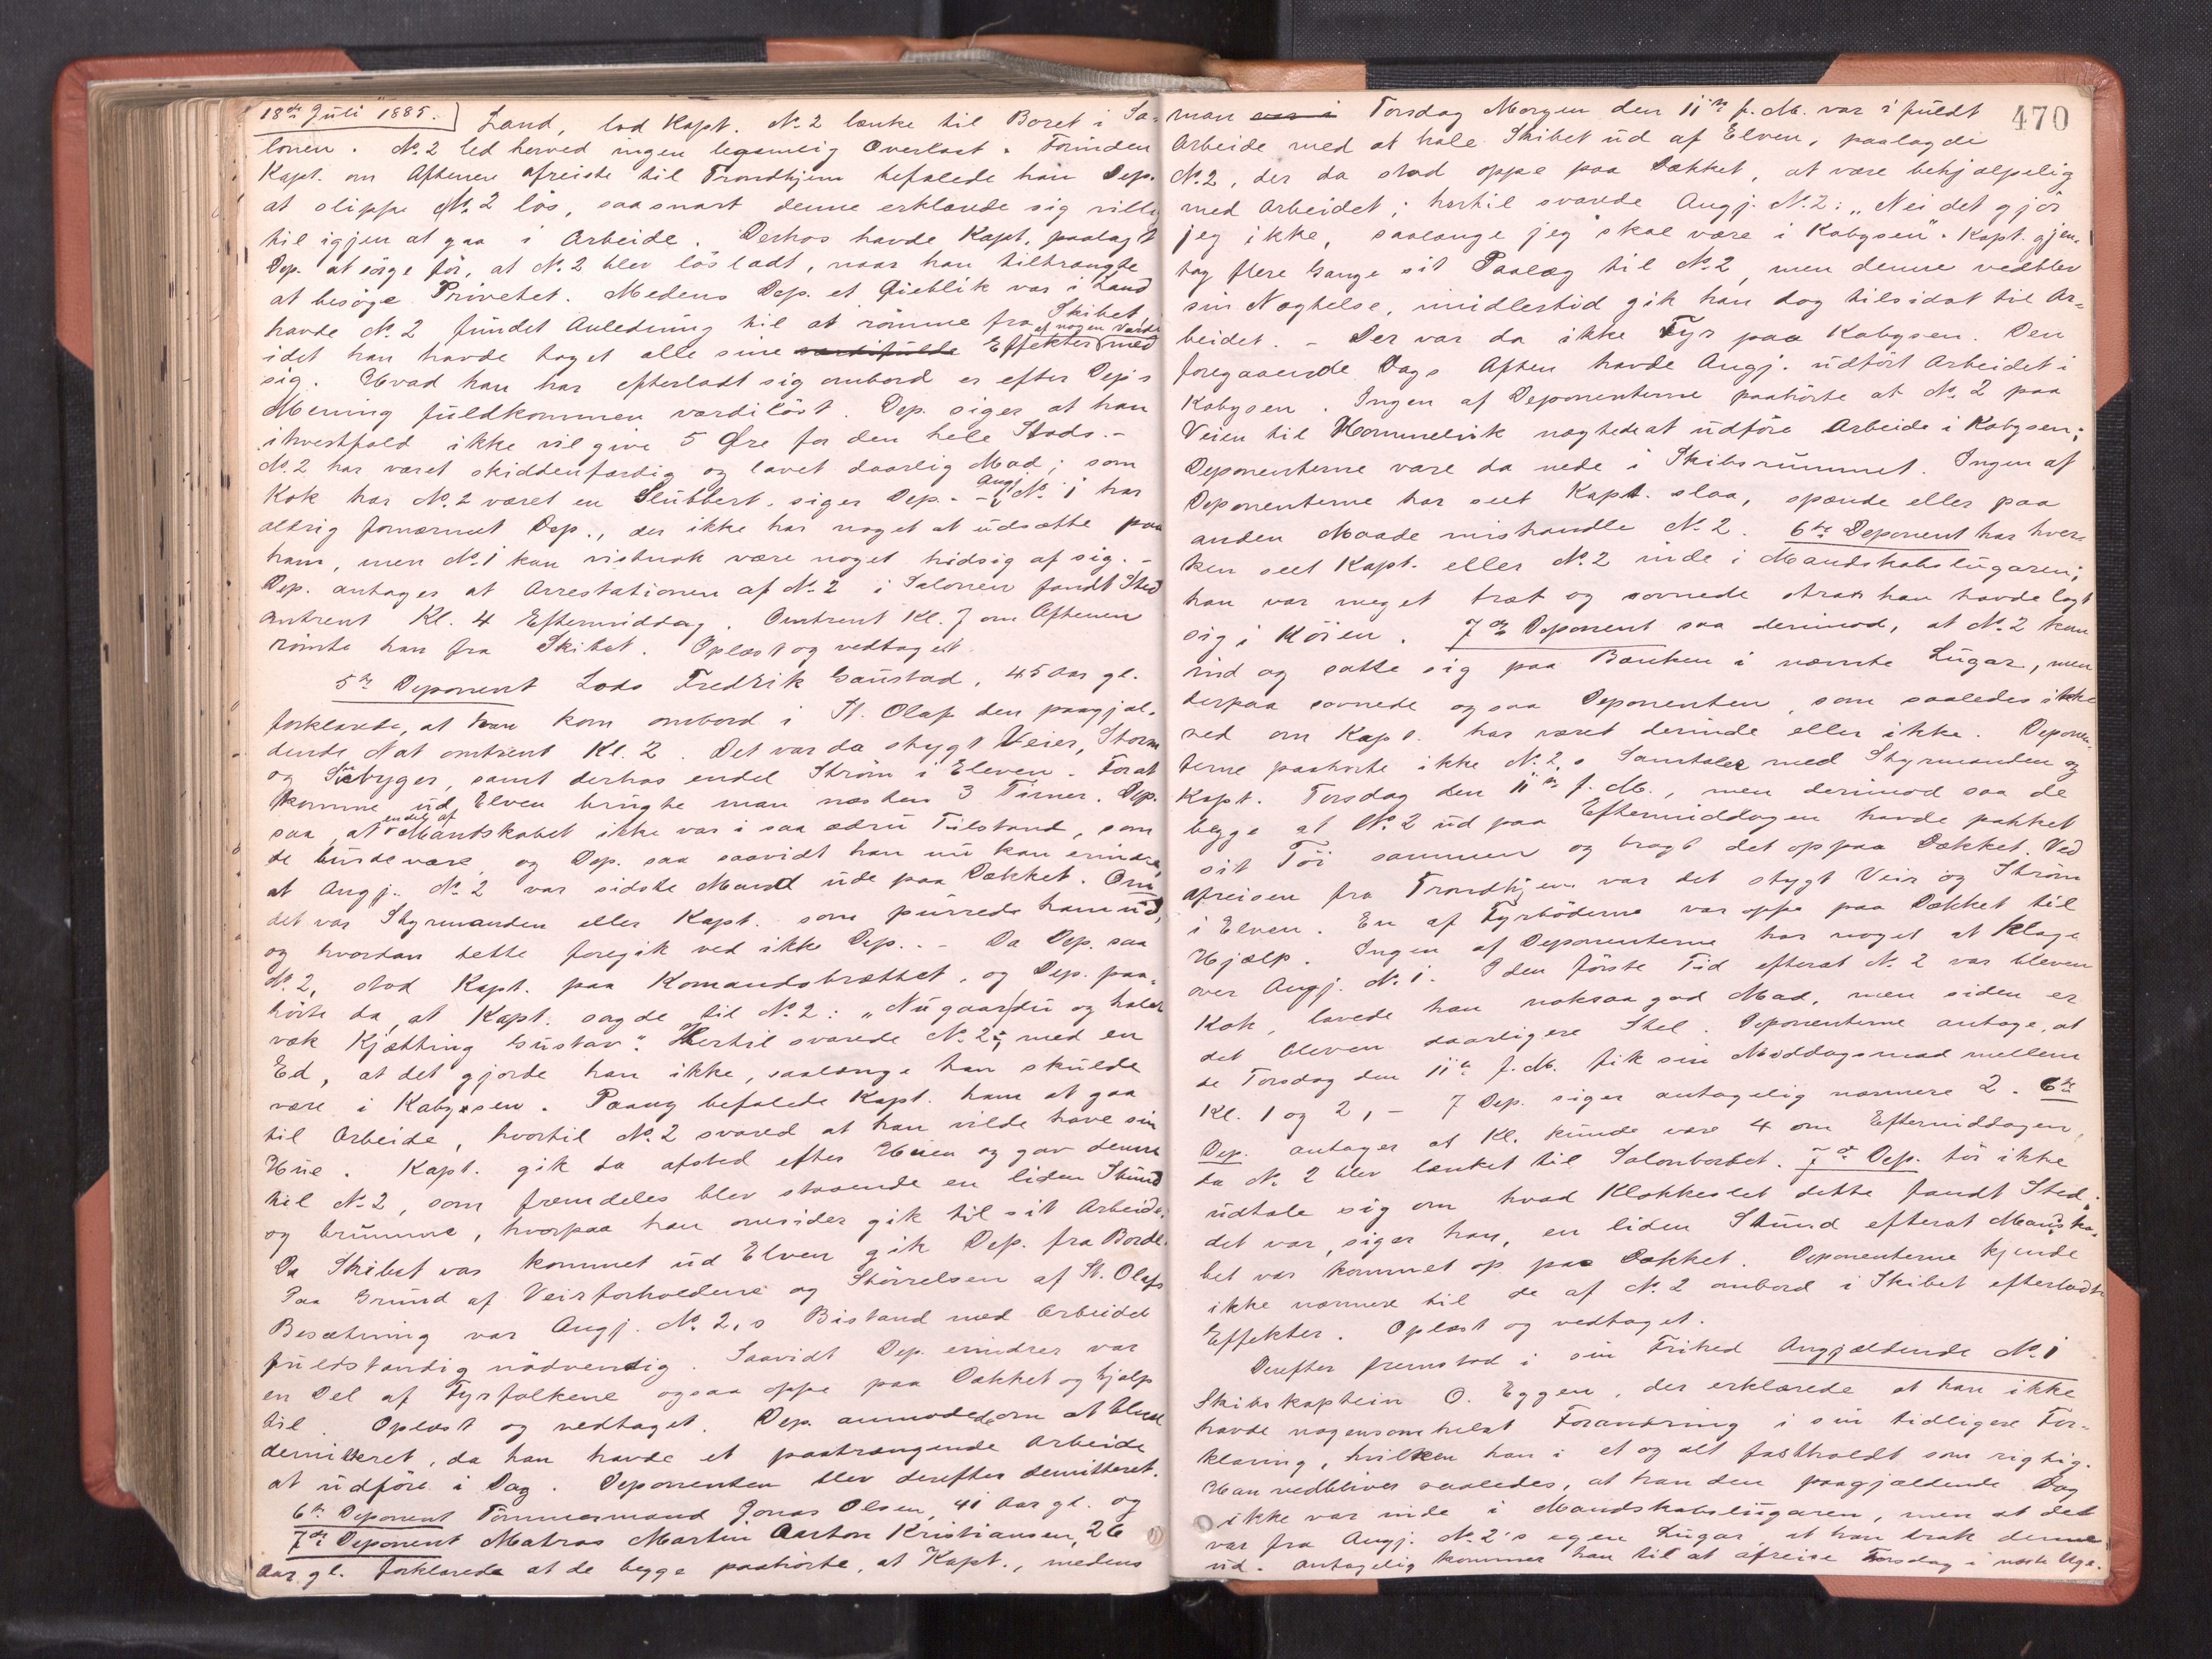 18de Juli 1885.
Land, lod Kapt. No 2 lænke til Boret i Sa-
lonen. No 2 led herved ingen legemlig Overlast. Forinden
Kapt. om Aftenen afreiste til Trondhjem befalede han Dep.
at slippe No 2 lös, saasnart denne erklærede sig villig
til igjen at gaa i Arbeide. Derhos havde Kapt. paalagt
Dep. at sörge for, at No 2 blev lösladt, naar han tiltrængte
at besöge Privetet. Medens Dep. et Øieblik var i Land
havde No 2 fundet Anledning til at römme fra Skibet
idet han havde taget alle sine værdifulde Effekter af nogen Værdi med
sig. Hvad han har efterladt sig ombord er efter Dep's
Mening fuldkommen værdilöst. Dep. siger at han
ihvertfald ikke vil give 5 Øre for den hele Stads. -
No 2 har været skiddenfærdig og lavet daarlig Mad; som
Kok har No 2 været en Slubbert, siger Dep. - Angj. No 1 har
aldrig fornærmet Dep., der ikke har noget at udsætte paa
ham, men No 1 kan vistnok være noget hidsig af sig. -
Dep. antager at Arrestationen af No 2 i Salonen fandt Sted
omtrent Kl. 4 Eftermiddag. Omtrent Kl. 7 om Aftenen
römte han fra Skibet. Oplæst og vedtaget.
5te Deponent Lods Fredrik Gaustad, 45 Aar gl.
forklarede, at han kom ombord i St. Olaf den paagjæl-
dende Nat omtrent Kl. 2. Det var da stygt Veier, Storm
og Snebyger, samt derhos endel Ström i Elven. Forat
komme ud Elven brugte man næsten 3 Timer. Dep.
saa, at endel af Mandskabet ikke var i saa ædru Tilstand, som
de burde være, og Dep. saa saavidt han nu kan erindre,
at Angj. No 2 var sidste Mand ude paa Dækket. Om
det var Styrmanden eller Kapt. som purrede ham ud,
og hvordan dette foregik ved ikke Dep. - Da Dep. saa
No 2, stod Kapt. paa Komandobrættet, og Dep. paa-
hörte da, at Kapt. sagde til No 2: "Nu gaar du og haler
væk Kjætting Gustav". Hertil svarede No 2, med en
Ed, at det gjorde han ikke, saalænge han skulde
være i Kabyssen. Paany befalede Kapt. ham at gaa
til Arbeide, hvortil No 2 svared at han vilde have sin
Hue. Kapt. gik da afsted efter Huen og gav denne
til No 2, som fremdeles blev staaende en liden Stund
og brumme, hvorpaa han omsider gik til sit Arbeide.
Da Skibet var kommet ud Elven gik Dep. fra Borde.
Paa Grund af Veirforholdene og Störrelsen af St. Olafs
Besætning var Angj. No 2,s Bistand med Arbeidet
fuldstændig nödvendig. Saavidt Dep. erindrer var
en Del af Fyrfolkene ogsaa oppe paa Dækket og hjalp
til. Oplæst og vedtaget. Dep. anmodede om at blive
demitteret, da han havde et paatrængende Arbeide
at udföre i Dag. Deponenten blev derefter demitteret.
6te Deponent Tömmermand Jonas Olsen, 41 Aar gl. og
7de Deponent Matros Martin Aarton Kristiansen, 26
Aar gl. forklarede at de begge paahörte, at Kapt., medens
470
man var i Torsdag Morgen den 11te f. M. var i fuldt
Arbeide med at hale Skibet ud af Elven, paalagde
No 2, der da stod oppe paa Dækket, at være behjælpelig
med Arbeidet; hertil svarede Angj. No 2: "Nei det gjör
jeg ikke, saalænge jeg skal være i Kabysen". Kapt. gjen-
tog flere Gange sit Paalæg til No 2, men denne vedblev
sin Nægtelse, imidlertid gik han dog tilsidst til Ar-
beidet. - Der var da ikke Fyr paa Kabysen. Den
foregaaende Dags Aften havde Angj. udfört Arbeidet i
Kabysen. Ingen af Deponenterne paahörte at No 2 paa
Veien til Hommelvik nægtede at udföre Arbeide i Kabysen;
Deponenterne vare da nede i Skibsrummet. Ingen af
Deponenterne har seet Kapt. slaa, spænde eller paa
anden Maade mishandle No 2. 6te Deponent har hver-
ken seet Kapt. eller No 2 inde i Mandskabslugaren;
han var meget træt og sovnede strax han havde lagt
sig i Köien. 7de Deponent saa derimod, at No 2 kom
ind og satte sig paa Bænken i nævnte Lugar, men
derpaa sovnede ogsaa Deponenten, som saaledes ikke
ved om Kapt. har været derinde eller ikke. Deponen-
terne paahörte ikke No 2,s Samtaler med Styrmanden og
Kapt. Torsdag den 11te f. M., men derimod saa de
begge at No 2 ud paa Eftermiddagen havde pakket
sit Töi sammen og bragt det op paa Dækket. Ved
afreisen fra Trondhjem var det stygt Veir og Ström
i Elven. En af Fyrböderne var oppe paa Dækket til
Hjælp. Ingen af Deponenterne har noget at Klage
over Angj. No 1. I den förste Tid efterat No 2 var bleven
Kok, lavede han noksaa god Mad, men siden er
det bleven daarligere Stel. Deponenterne antage, at
de Torsdag den 11te f. M. fik sin Middagsmad mellem
Kl. 1 og 2, - 7 Dep. siger antagelig nærmere 2. 6te
Dep. antager at Kl. kunde være 4 om Eftermiddagen,
da No 2 blev lænket til Salonbordet. 7de Dep. tör ikke
udtale sig om hvad Klokkeslet dette fandt Sted;
det var, siger han, en liden Stund efterat Mandska-
bet var kommet op paa Dækket. Deponenterne kjende
ikke nærmere til de af No 2 ombord i Skibet efterladte
Effekter. Oplæst og vedtaget.
Derefter fremstod i sin Frihed Angjældende No 1
Skibskaptein O. Eggen, der erklærede at han ikke
havde nogensomhelst Forandring i sin tidligere For-
klaring, hvilken han i et og alt fastholdt som rigtig.
Han vedbliver saaledes, at han den paagjældende Dag
ikke var inde i Mandskabslugaren, men at det
var fra Angj. No 2's egen Lugar, at han trak denne
ud. Antagelig kommer han til at afreise Torsdag i næste Uge.